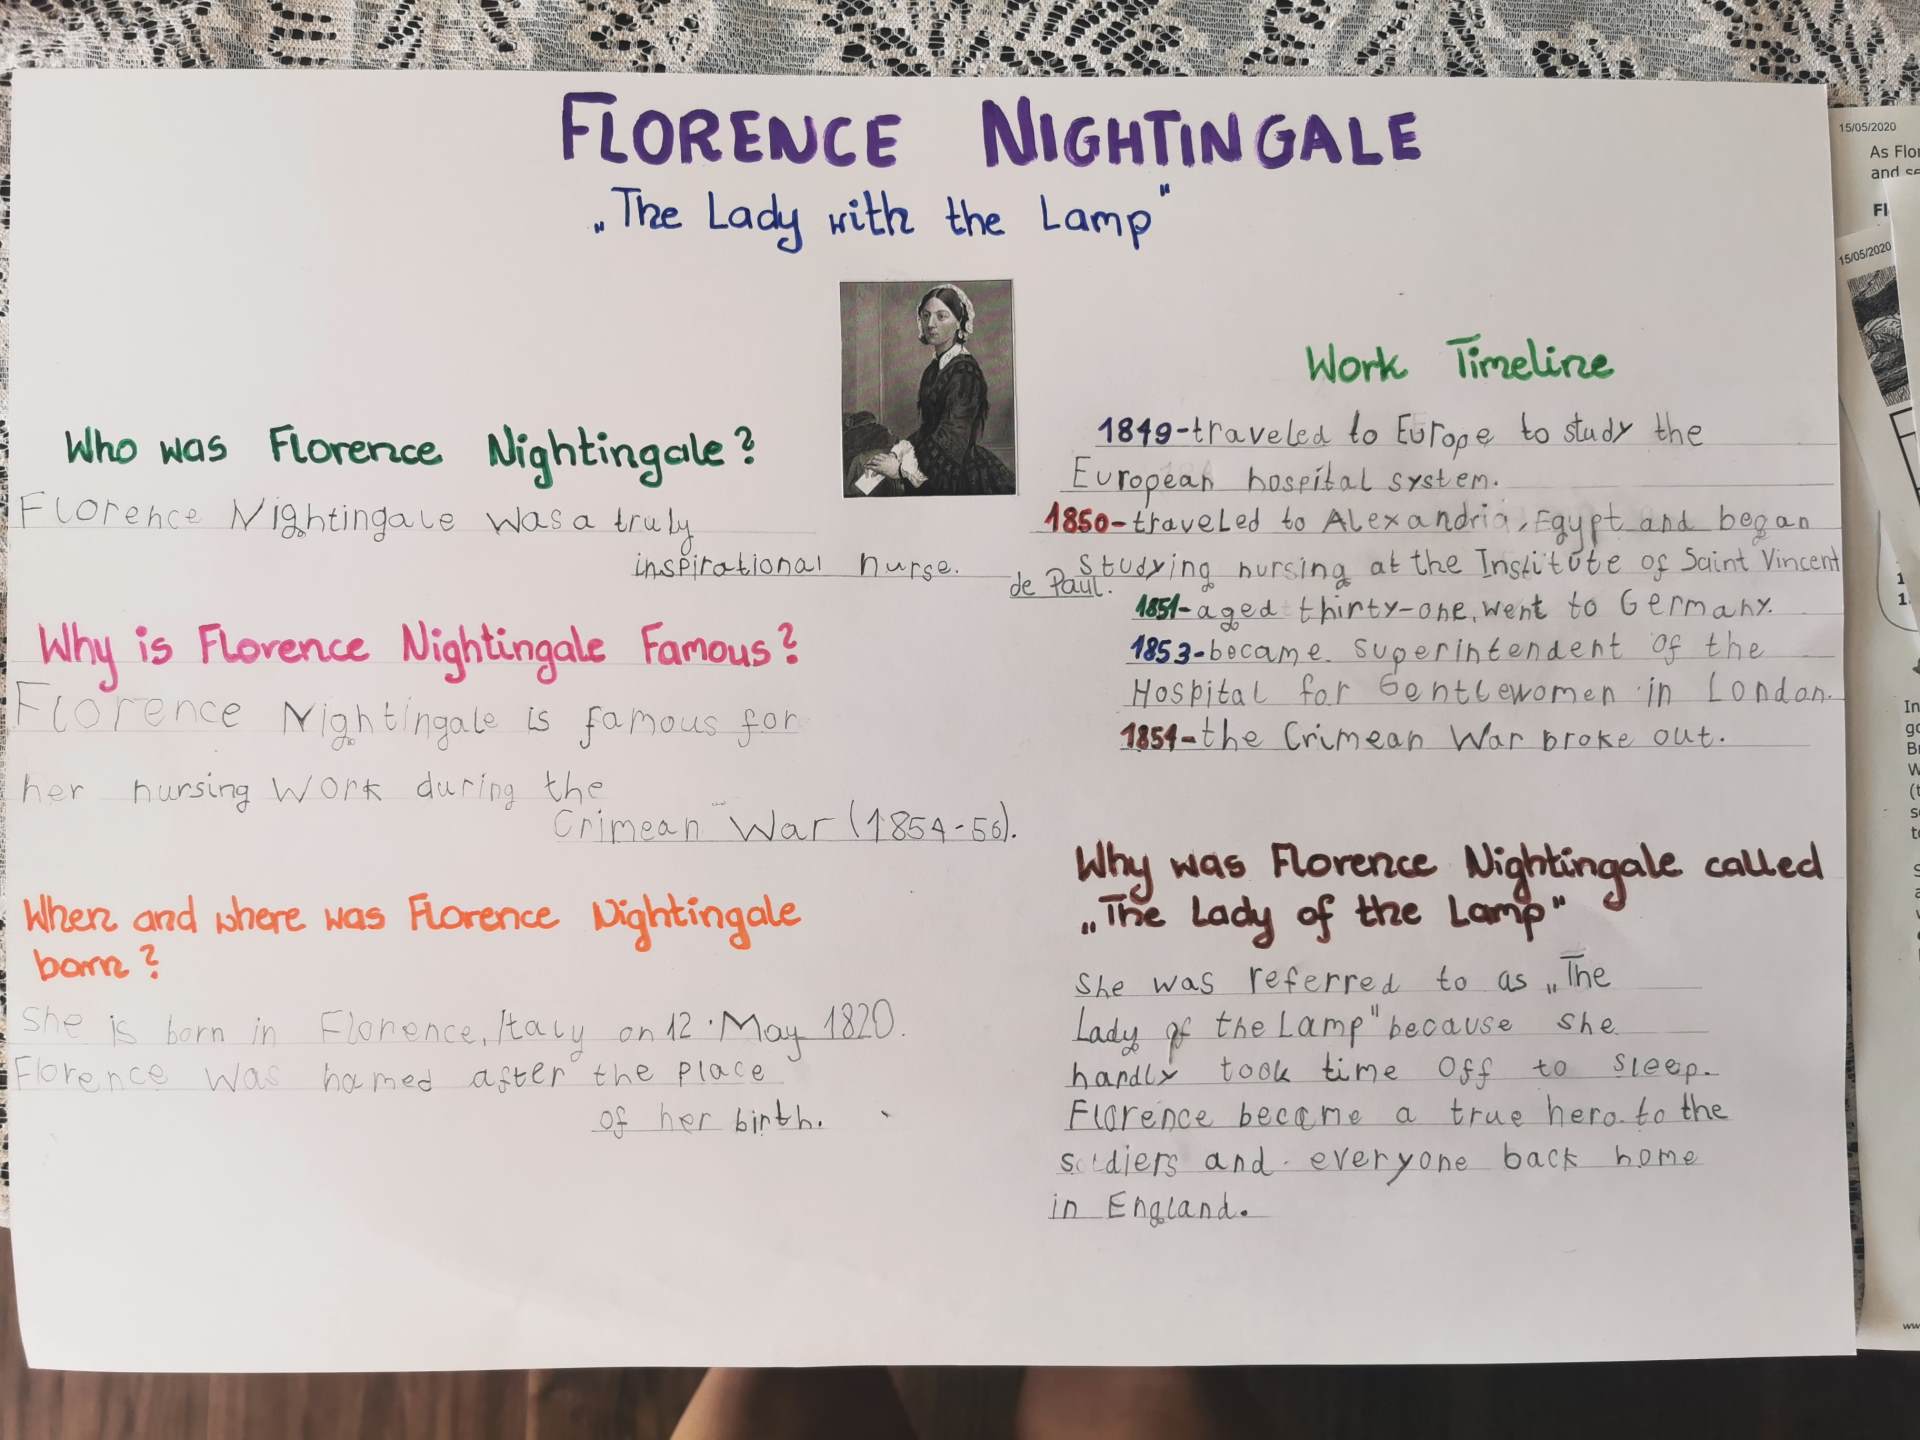 FLORENCE NIGHTINGALE
„The Lady with the Lamp"
Who was Florence Nightingale?
Florence Nightingale was a truly
inspirational nurse.
Why is Florence Nightingale Famous?
Florence Nightingale is famous for
her nursing work during the
Crimean War (1854-56).
When and where was Florence Nightingale
born?
She is born in Florence, Italy on 12 May 1820.
Florence was named after the place
of her birth.
Work Timeline
1849-traveled to Europe to study the
European hospital system.
1850-traveled to Alexandria, Egypt and began
Studying nursing at the Institute of Saint Vincent
de Paul.
1851-aged thirty-one, went to Germany.
1853-became superintendent of the
Hospital for Gentlewomen in London.
1854-the Crimean War broke out.
Why was Florence Nightingale called
„The Lady of the Lamp"
She was referred to as „The
Lady of the Lamp" because she
hardly took time off to sleep.
Florence became a true hero to the
soldiers and everyone back home
in England.
15/05/2020
As Flor
and se
Fl
15/05/2020
1
1.
In
go
Br
W
(t